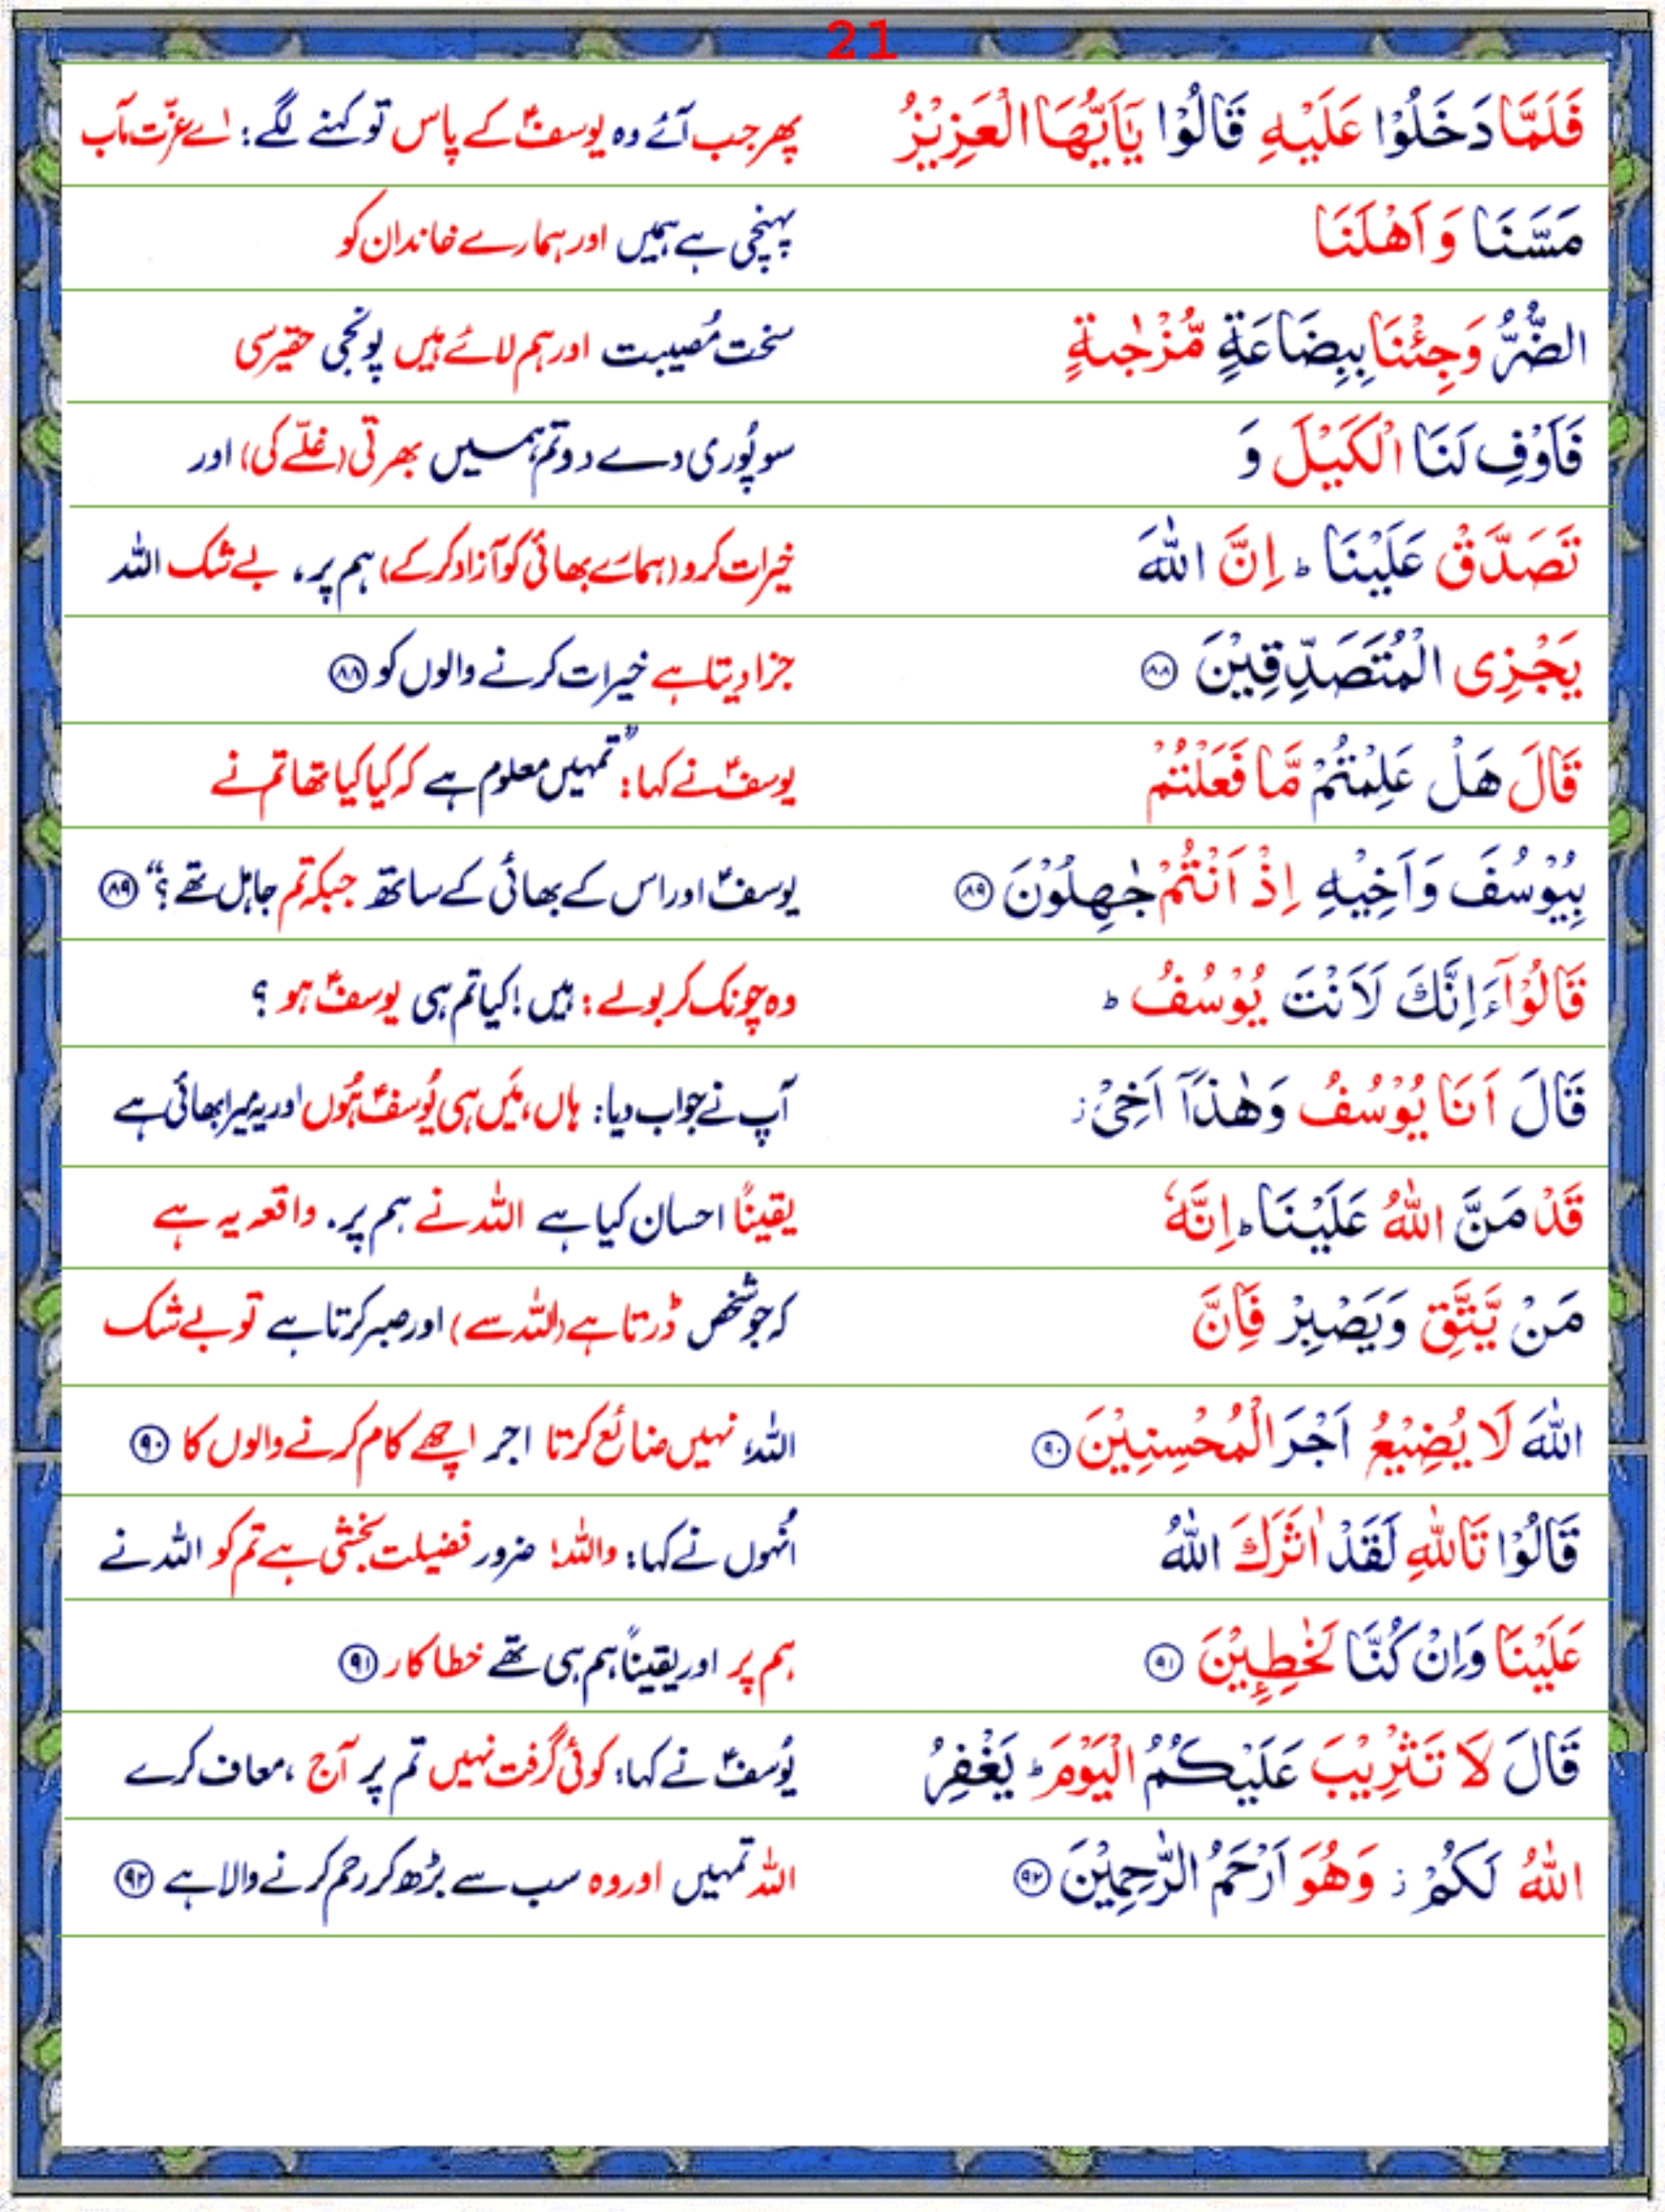 21
فَلَمَّا دَخَلُوْا عَلَيْهِ قَالُوْا يٰٓاَيُّهَا الْعَزِيْزُ پھر جب آئے وہ یوسفؑ کے پاس تو کہنے لگے: اے عزّت مآب
مَسَّنَا وَ اَهْلَنَا پہنچی ہے ہمیں اور ہمارے خاندان کو
الضُّرُّ وَ جِئْنَا بِبِضَاعَةٍ مُّزْجٰىةٍ سخت مُصیبت اور ہم لائے ہیں پونجی حقیر سی
فَاَوْفِ لَنَا الْكَيْلَ وَ سو پُوری دے دو تم ہمیں بھرتی (غلّے کی) اور
تَصَدَّقْ عَلَيْنَا ؕ اِنَّ اللّٰهَ خیرات کرو (ہمارے بھائی کو آزاد کر کے) ہم پر، بے شک اللہ
يَجْزِى الْمُتَصَدِّقِيْنَ ۸۸ جزا دیتا ہے خیرات کرنے والوں کو ۸۸
قَالَ هَلْ عَلِمْتُمْ مَّا فَعَلْتُمْ یوسفؑ نے کہا: ”تمہیں معلوم ہے کہ کیا کیا تھا تم نے
بِيُوْسُفَ وَ اَخِيْهِ اِذْ اَنْتُمْ جٰهِلُوْنَ ۸۹ یوسفؑ اور اس کے بھائی کے ساتھ جبکہ تم جاہل تھے؟“ ۸۹
قَالُوْٓا ءَاِنَّكَ لَاَنْتَ يُوْسُفُ ؕ وہ چونک کر بولے: ہیں! کیا تم ہی یوسفؑ ہو ؟
قَالَ اَنَا يُوْسُفُ وَ هٰذَآ اَخِىْ ز آپ نے جواب دیا: ہاں، مَیں ہی یُوسفؑ ہُوں اور یہ میرا بھائی ہے
قَدْ مَنَّ اللّٰهُ عَلَيْنَا ؕ اِنَّهٗ یقیناً احسان کیا ہے اللہ نے ہم پر۔ واقعہ یہ ہے
مَنْ يَّتَّقِ وَيَصْبِرْ فَاِنَّ کہ جو شخص ڈرتا ہے (اللہ سے) اور صبر کرتا ہے تو بے شک
اللّٰهَ لَا يُضِيْعُ اَجْرَ الْمُحْسِنِيْنَ ۹۰ اللہ نہیں ضائع کرتا اجر اچھے کام کرنے والوں کا ۹۰
قَالُوْا تَاللّٰهِ لَقَدْ اٰثَرَكَ اللّٰهُ اُنہوں نے کہا: واللہ! ضرور فضیلت بخشی ہے تم کو اللہ نے
عَلَيْنَا وَاِنْ كُنَّا لَخٰطِـِٕيْنَ ۹۱ ہم پر اور یقیناً ہم ہی تھے خطاکار ۹۱
قَالَ لَا تَثْرِيْبَ عَلَيْكُمُ الْيَوْمَ ؕ يَغْفِرُ یُوسفؑ نے کہا: کوئی گرفت نہیں تم پر آج ، معاف کرے
اللّٰهُ لَكُمْ ز وَهُوَ اَرْحَمُ الرّٰحِمِيْنَ ۹۲ اللہ تمہیں اور وہ سب سے بڑھ کر رحم کرنے والا ہے ۹۲